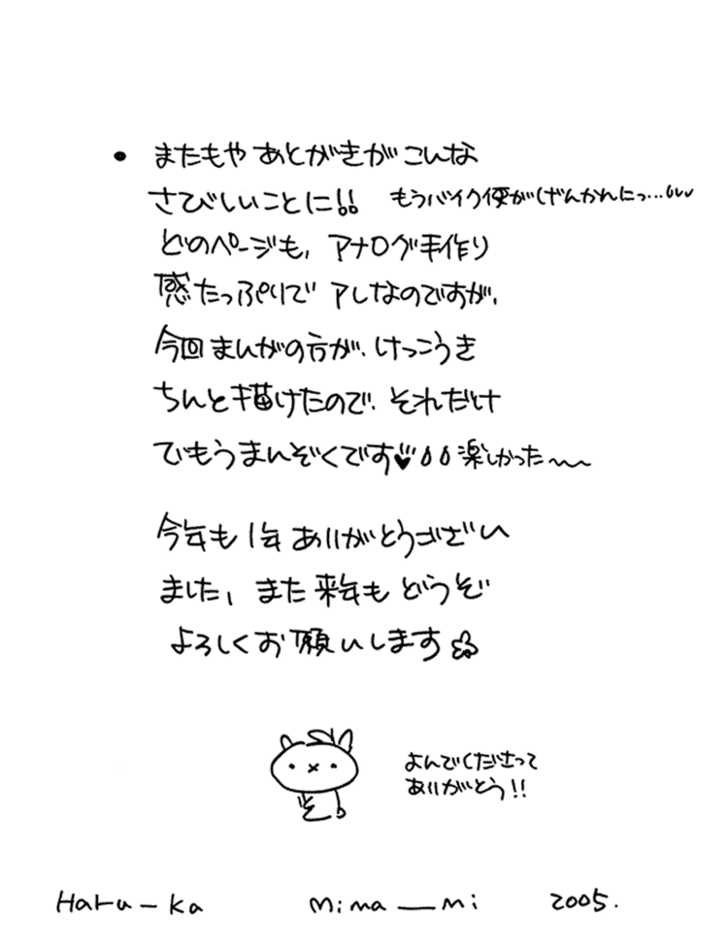 • またもや あとがきが こんな
さびしいことに!! もうバイク便がげんかんにっ…
どのページも、アナログ手作り
感たっぷりで アレなのですが、
今回まんがの方が、けっこうき
ちんと描けたので、それだけ
でもうまんぞくです♥ 楽しかった〜〜
今年も1年ありがとうござい
ました、また来年もどうぞ
よろしくお願いします
よんでくださって
ありがとう!!
Haru－ka mima＿mi 2005.